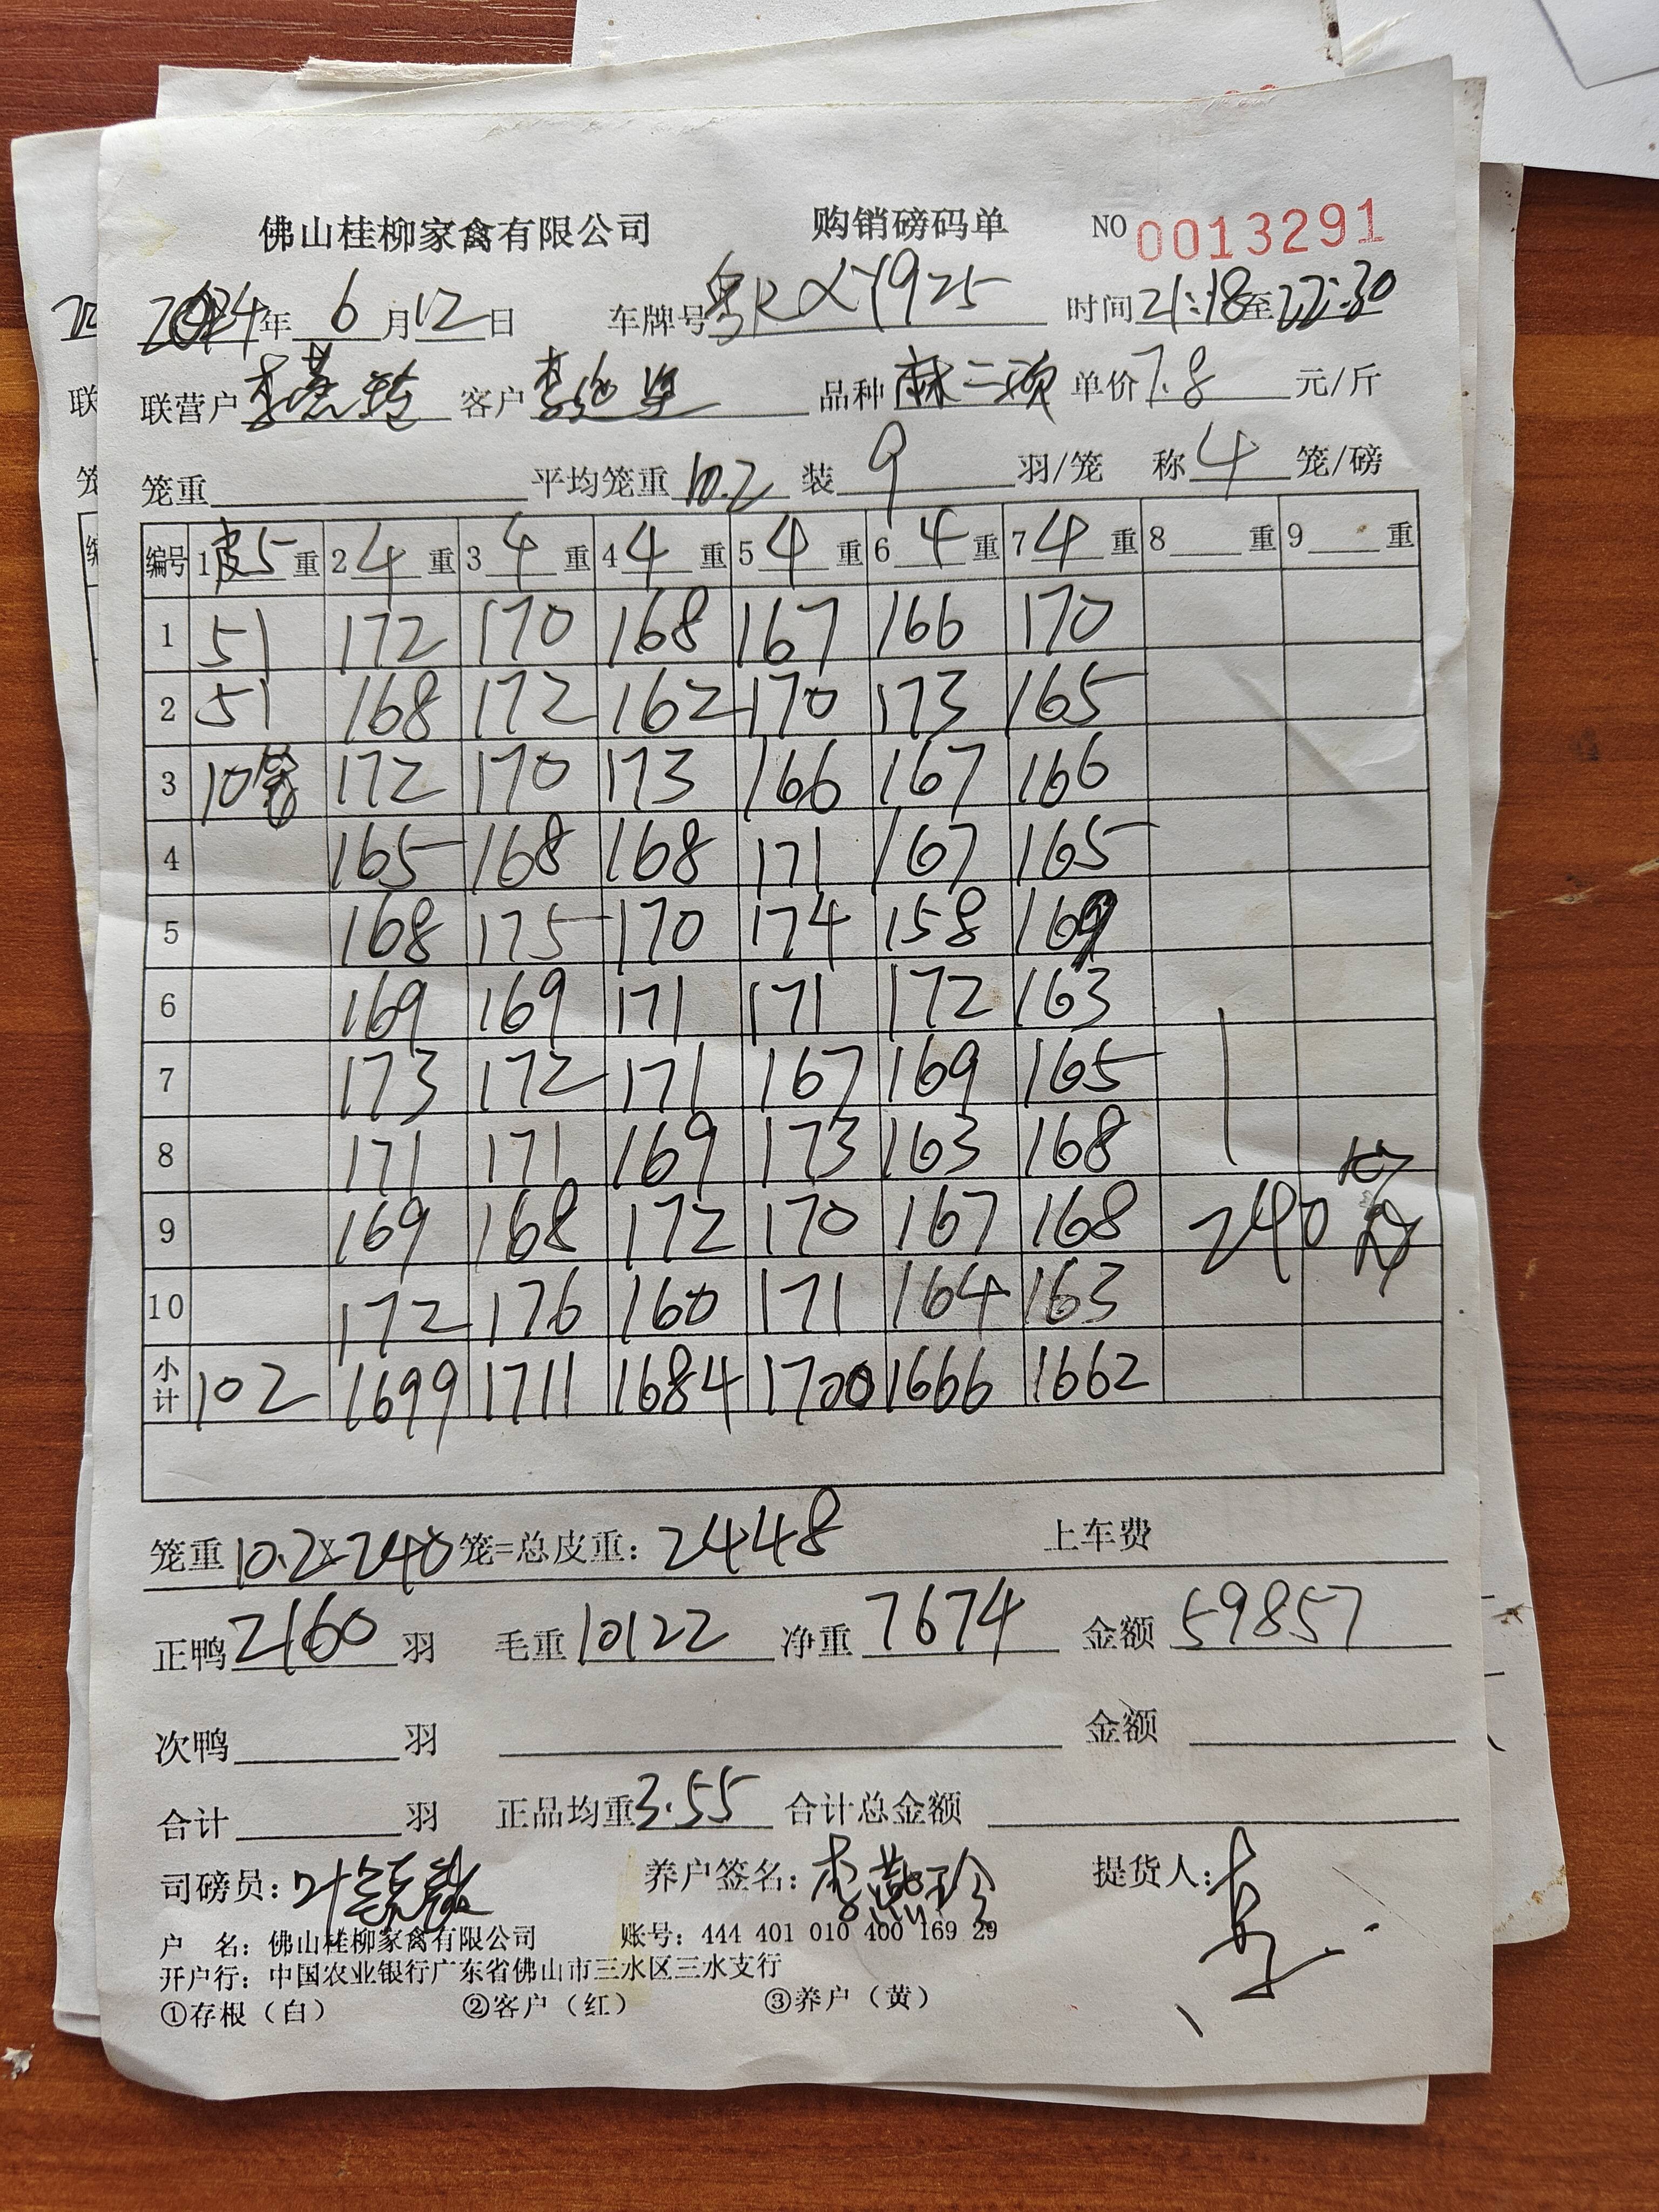 佛山桂柳家禽有限公司 购销磅码单 NO 0013291
2024年 6 月 12 日 车牌号 粤R XY925 时间 21:18 至 22:30
联营户 李燕玲 客户 李 品种 麻二 单价 7.8 元/斤
笼重 平均笼重 10.2 装 9 羽/笼 称 4 笼/磅
编号 1 皮5 重 2 4 重 3 4 重 4 4 重 5 4 重 6 4 重 7 4 重 8 重 9 重
1 51 172 170 168 167 166 170
2 51 168 172 162 170 173 165
3 10笼 172 170 173 166 167 166
4 165 168 168 171 167 165
5 168 175 170 174 158 169
6 169 169 171 171 172 163
7 173 172 171 167 169 165
8 171 171 169 173 163 168
9 169 168 172 170 167 168 240
10 172 176 160 171 164 163
小计 102 1699 1711 1684 1700 1666 1662
笼重 10.2×240 笼=总皮重: 2448 上车费
正鸭 2160 羽 毛重 10122 净重 7674 金额 59857
次鸭 羽 金额
合计 羽 正品均重 3.55 合计总金额
司磅员: 叶 养户签名: 李燕珍 提货人:
户 名: 佛山桂柳家禽有限公司 账号: 444 401 010 400 169 29
开户行: 中国农业银行广东省佛山市三水区三水支行
①存根(白) ②客户(红) ③养户(黄)